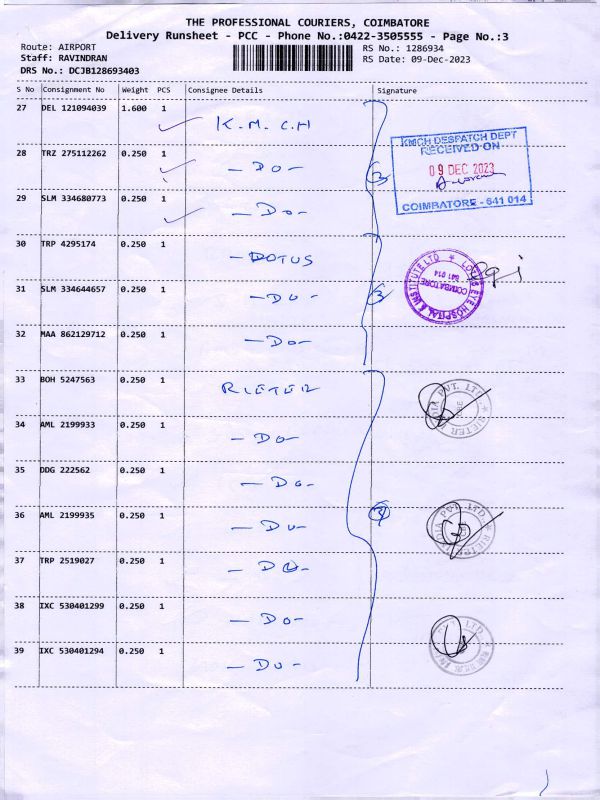 THE PROFESSIONAL COURIERS, COIMBATORE
Delivery Runsheet - PCC - Phone No.:0422-3505555 - Page No.:3
Route: AIRPORT RS No.: 1286934
Staff: RAVINDRAN RS Date: 09-Dec-2023
DRS No.: DCJB128693403
S No Consignment No Weight PCS Consignee Details Signature
27 DEL 121094039 1.600 1 K.M.C.H
28 TRZ 275112262 0.250 1 -DO-
29 SLM 334680773 0.250 1 -DO-
KMCH DESPATCH DEPT
RECEIVED ON
09 DEC 2023
COIMBATORE - 641 014
30 TRP 4295174 0.250 1 -LOTUS
31 SLM 334644657 0.250 1 -DO-
LOTUS EYE HOSPITAL & INSTITUTE LTD
COIMBATORE
641 014
32 MAA 862129712 0.250 1 -DO-
33 BOH 5247563 0.250 1 RIETER
RIETER INDIA PVT. LTD.
34 AML 2199933 0.250 1 -DO-
35 DDG 222562 0.250 1 -DO-
36 AML 2199935 0.250 1 -DO-
RIETER INDIA PVT. LTD.
37 TRP 2519027 0.250 1 -DO-
38 IXC 530401299 0.250 1 -DO-
39 IXC 530401294 0.250 1 -DO-